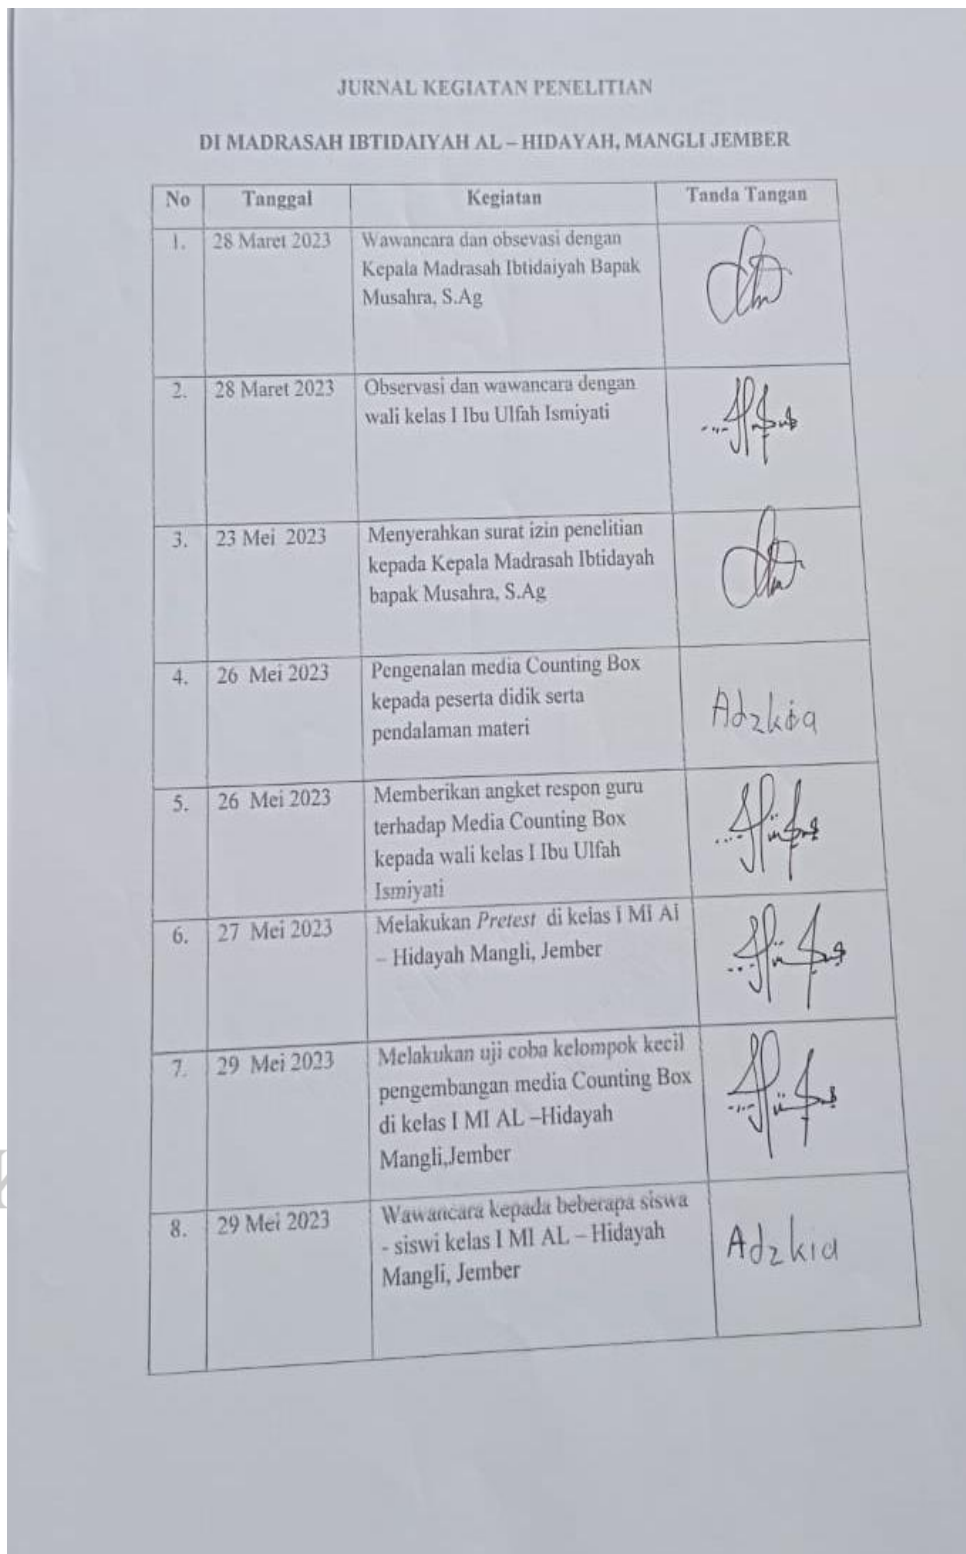 JURNAL KEGIATAN PENELITIAN
DI MADRASAH IBTIDAIYAH AL – HIDAYAH, MANGLI JEMBER
No Tanggal Kegiatan Tanda Tangan
1. 28 Maret 2023 Wawancara dan obsevasi dengan
Kepala Madrasah Ibtidaiyah Bapak
Musahra, S.Ag
2. 28 Maret 2023 Observasi dan wawancara dengan
wali kelas I Ibu Ulfah Ismiyati
3. 23 Mei 2023 Menyerahkan surat izin penelitian
kepada Kepala Madrasah Ibtidayah
bapak Musahra, S.Ag
4. 26 Mei 2023 Pengenalan media Counting Box
kepada peserta didik serta
pendalaman materi
Adzkia
5. 26 Mei 2023 Memberikan angket respon guru
terhadap Media Counting Box
kepada wali kelas I Ibu Ulfah
Ismiyati
6. 27 Mei 2023 Melakukan Pretest di kelas I MI Al
– Hidayah Mangli, Jember
7. 29 Mei 2023 Melakukan uji coba kelompok kecil
pengembangan media Counting Box
di kelas I MI AL –Hidayah
Mangli,Jember
8. 29 Mei 2023 Wawancara kepada beberapa siswa
- siswi kelas I MI AL – Hidayah
Mangli, Jember
Adzkia